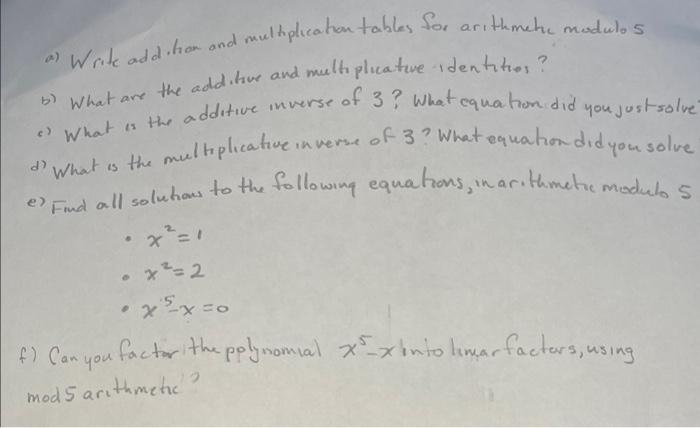 a) Write addition and multiplication tables for arithmetic modulo 5
b) What are the additive and multiplicative identities?
c) What is the additive inverse of 3? What equation did you just solve
d) What is the multiplicative inverse of 3? What equation did you solve
e) Find all solutions to the following equations, in arithmetic modulo 5
• x² = 1
• x² = 2
• x⁵-x = 0
f) Can you factor the pplynomial x⁵-x into linear factors, using
mod 5 arithmetic?